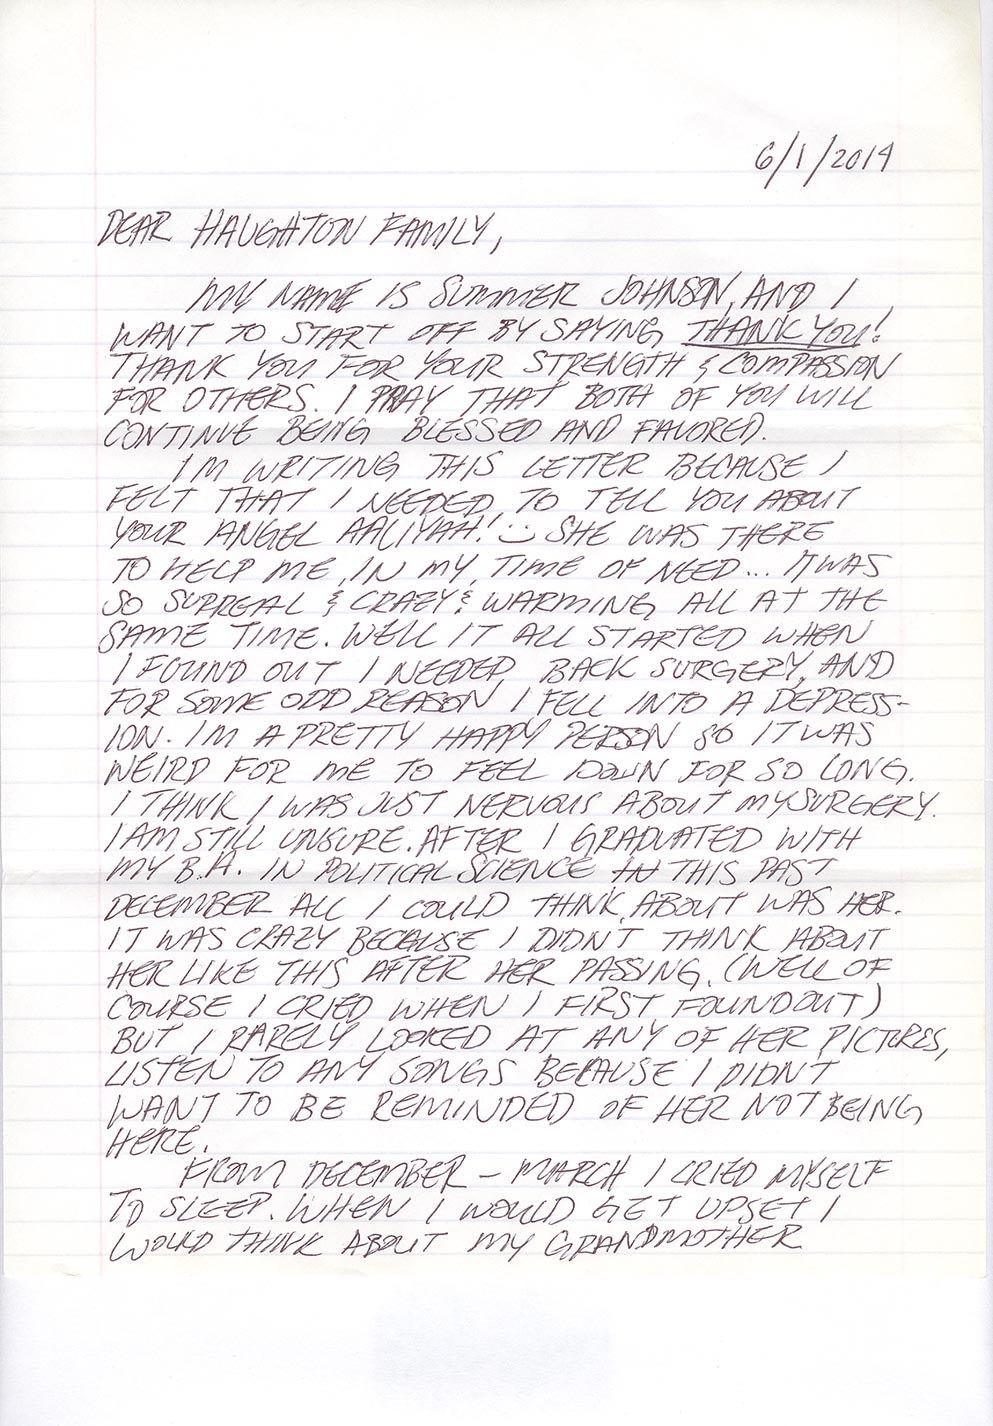 6/1/2014
DEAR HAUGHTON FAMILY,
MY NAME IS SUMMER JOHNSON, AND I
WANT TO START OFF BY SAYING THANK YOU!
THANK YOU FOR YOUR STRENGTH & COMPASSION
FOR OTHERS. I PRAY THAT BOTH OF YOU WILL
CONTINUE BEING BLESSED AND FAVORED.
I'M WRITING THIS LETTER BECAUSE I
FELT THAT I NEEDED TO TELL YOU ABOUT
YOUR ANGEL AALIYAH! :) SHE WAS THERE
TO HELP ME, IN MY TIME OF NEED... IT WAS
SO SURREAL & CRAZY & WARMING ALL AT THE
SAME TIME. WELL IT ALL STARTED WHEN
I FOUND OUT I NEEDED BACK SURGERY, AND
FOR SOME ODD REASON I FELL INTO A DEPRESS-
ION. I'M A PRETTY HAPPY PERSON SO IT WAS
WEIRD FOR ME TO FEEL DOWN FOR SO LONG.
I THINK I WAS JUST NERVOUS ABOUT MY SURGERY.
I AM STILL UNSURE. AFTER I GRADUATED WITH
MY B.A. IN POLITICAL SCIENCE IN THIS PAST
DECEMBER ALL I COULD THINK ABOUT WAS HER.
IT WAS CRAZY BECAUSE I DIDN'T THINK ABOUT
HER LIKE THIS AFTER HER PASSING. (WELL OF
COURSE I CRIED WHEN I FIRST FOUND OUT)
BUT I RARELY LOOKED AT ANY OF HER PICTURES,
LISTEN TO ANY SONGS BECAUSE I DIDN'T
WANT TO BE REMINDED OF HER NOT BEING
HERE.
FROM DECEMBER - MARCH I CRIED MYSELF
TO SLEEP. WHEN I WOULD GET UPSET I
WOULD THINK ABOUT MY GRANDMOTHER